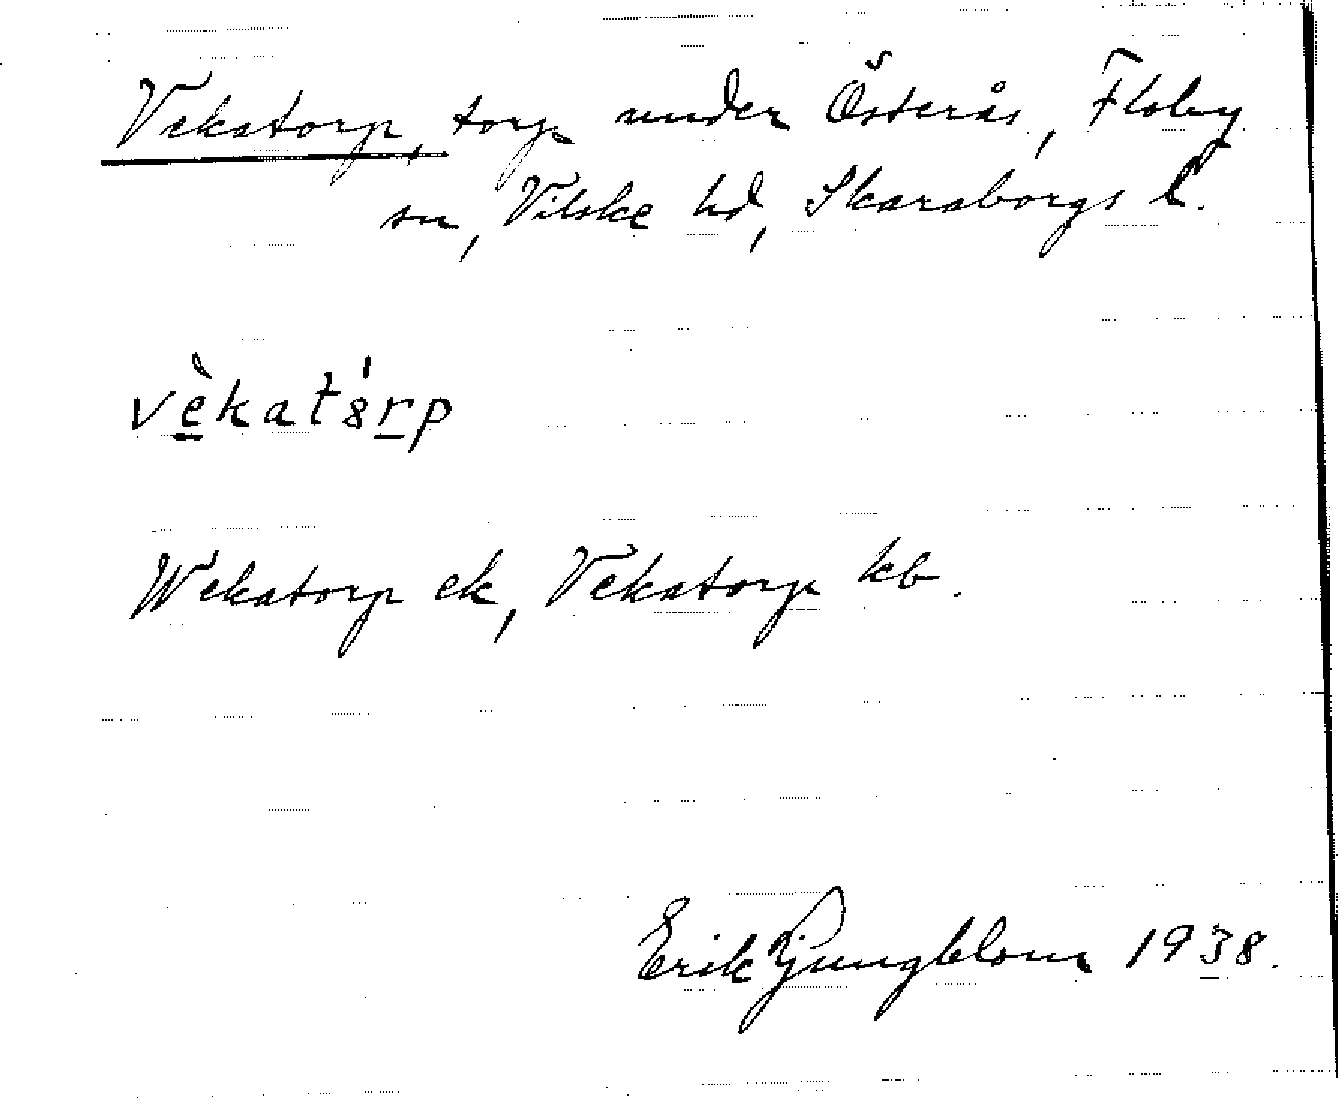 Vekatorp, torp under Österås, Floby
sn, Vilske hd, Skaraborgs l.
vèkatórp
Wekatorp ek, Vekatorp kb.
Erik Ljungblom 1938.